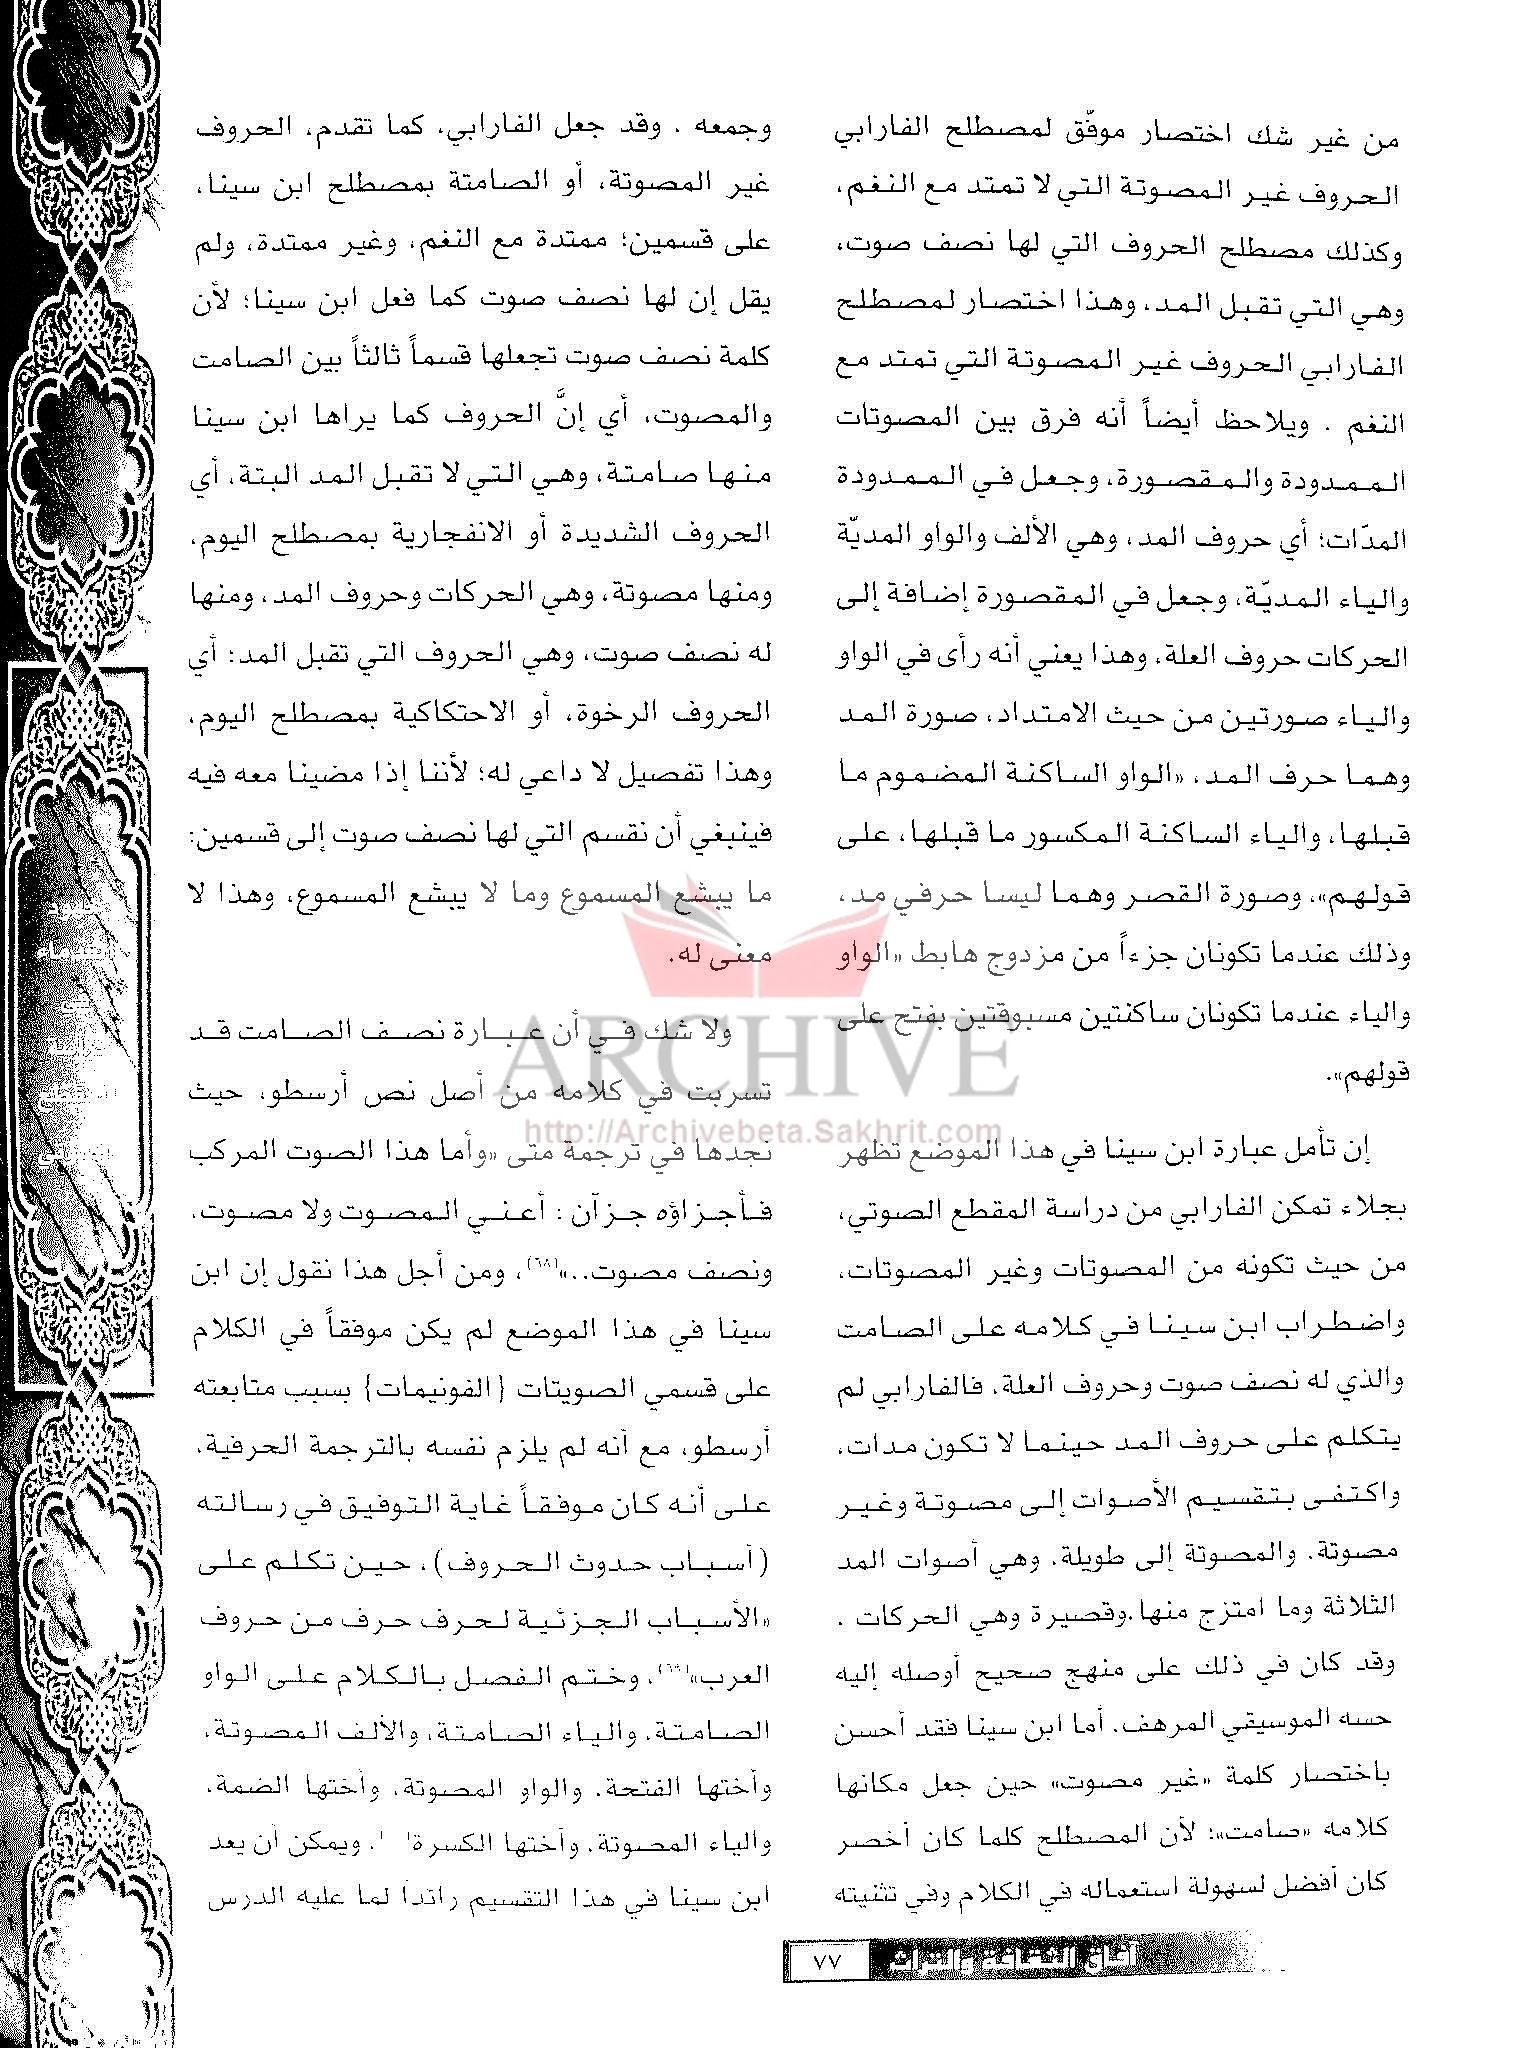 من غير شك اختصار موفّق لمصطلح الفارابي
الحروف غير المصوتة التي لا تمتد مع النغم،
وكذلك مصطلح الحروف التي لها نصف صوت،
وهي التي تقبل المد، وهذا اختصار لمصطلح
الفارابي الحروف غير المصوتة التي تمتد مع
النغم . ويلاحظ أيضاً أنه فرق بين المصوتات
الممدودة والمقصورة، وجعل في الممدودة
المدّات؛ أي حروف المد، وهي الألف والواو المديّة
والياء المديّة، وجعل في المقصورة إضافة إلى
الحركات حروف العلة، وهذا يعني أنه رأى في الواو
والياء صورتين من حيث الامتداد، صورة المد
وهما حرف المد، «الواو الساكنة المضموم ما
قبلها، والياء الساكنة المكسور ما قبلها، على
قولهم»، وصورة القصر وهما ليسا حرفي مد،
وذلك عندما تكونان جزءاً من مزدوج هابط «الواو
والياء عندما تكونان ساكنتين مسبوقتين بفتح على
قولهم».
إن تأمل عبارة ابن سينا في هذا الموضع تظهر
بجلاء تمكن الفارابي من دراسة المقطع الصوتي،
من حيث تكونه من المصوتات وغير المصوتات،
واضطراب ابن سينا في كلامه على الصامت
والذي له نصف صوت وحروف العلة، فالفارابي لم
يتكلم على حروف المد حينما لا تكون مدات،
واكتفى بتقسيم الأصوات إلى مصوتة وغير
مصوتة، والمصوتة إلى طويلة، وهي أصوات المد
الثلاثة وما امتزج منها، وقصيرة وهي الحركات .
وقد كان في ذلك على منهج صحيح أوصله إليه
حسه الموسيقي المرهف. أما ابن سينا فقد أحسن
باختصار كلمة «غير مصوت» حين جعل مكانها
كلامه «صامت»؛ لأن المصطلح كلما كان أخصر
كان أفضل لسهولة استعماله في الكلام وفي تثنيته
وجمعه . وقد جعل الفارابي، كما تقدم، الحروف
غير المصوتة، أو الصامتة بمصطلح ابن سينا،
على قسمين؛ ممتدة مع النغم، وغير ممتدة، ولم
يقل إن لها نصف صوت كما فعل ابن سينا؛ لأن
كلمة نصف صوت تجعلها قسماً ثالثاً بين الصامت
والمصوت، أي إنَّ الحروف كما يراها ابن سينا
منها صامتة، وهي التي لا تقبل المد البتة، أي
الحروف الشديدة أو الانفجارية بمصطلح اليوم،
ومنها مصوتة، وهي الحركات وحروف المد، ومنها
له نصف صوت، وهي الحروف التي تقبل المد؛ أي
الحروف الرخوة، أو الاحتكاكية بمصطلح اليوم،
وهذا تفصيل لا داعي له؛ لأننا إذا مضينا معه فيه
فينبغي أن نقسم التي لها نصف صوت إلى قسمين:
ما يبشع المسموع وما لا يبشع المسموع، وهذا لا
معنى له.
ولا شك في أن عبارة نصف الصامت قد
تسربت في كلامه من أصل نص أرسطو، حيث
نجدها في ترجمة متى «وأما هذا الصوت المركب
فأجزاؤه جزآن : أعني المصوت ولا مصوت،
ونصف مصوت..»(٦٨)، ومن أجل هذا نقول إن ابن
سينا في هذا الموضع لم يكن موفقاً في الكلام
على قسمي الصويتات {الفونيمات} بسبب متابعته
أرسطو، مع أنه لم يلزم نفسه بالترجمة الحرفية،
على أنه كان موفقاً غاية التوفيق في رسالته
(أسباب حدوث الحروف)، حين تكلم على
«الأسباب الجزئية لحرف حرف من حروف
العرب»(٦٩)، وختم الفصل بالكلام على الواو
الصامتة، والياء الصامتة، والألف المصوتة،
وأختها الفتحة، والواو المصوتة، وأختها الضمة،
والياء المصوتة، وأختها الكسرة، ويمكن أن يعد
ابن سينا في هذا التقسيم رائداً لما عليه الدرس
ARCHIVE
http://Archivebeta.Sakhrit.com
آفاق الثقافة والتراث ٧٧